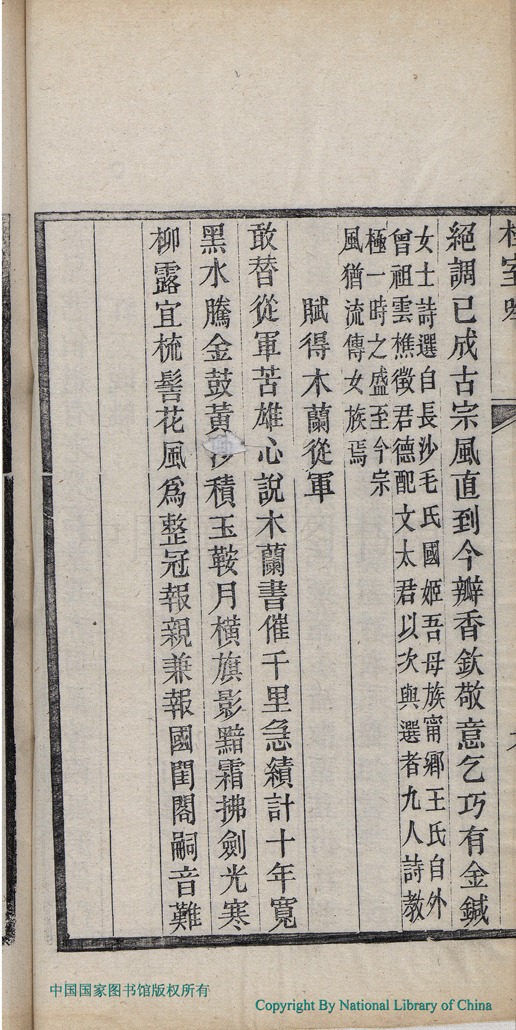 絕調已成古宗風直到今瓣香欽敬意乞巧有金鍼
女士詩選自長沙毛氏國姬吾母族甯鄉王氏自外
曾祖雲樵徵君德配文太君以次與選者九人詩教
極一時之盛至今宗
風猶流傳女族焉
賦得木蘭從軍
敢替從軍苦雄心說木蘭書催千里急績計十年寬
黑水騰金鼓黃沙積玉鞍月橫旗影黯霜拂劍光寒
柳露宜梳髻花風爲整冠報親兼報國閨閣嗣音難
中国国家图书馆版权所有
Copyright By National Library of China